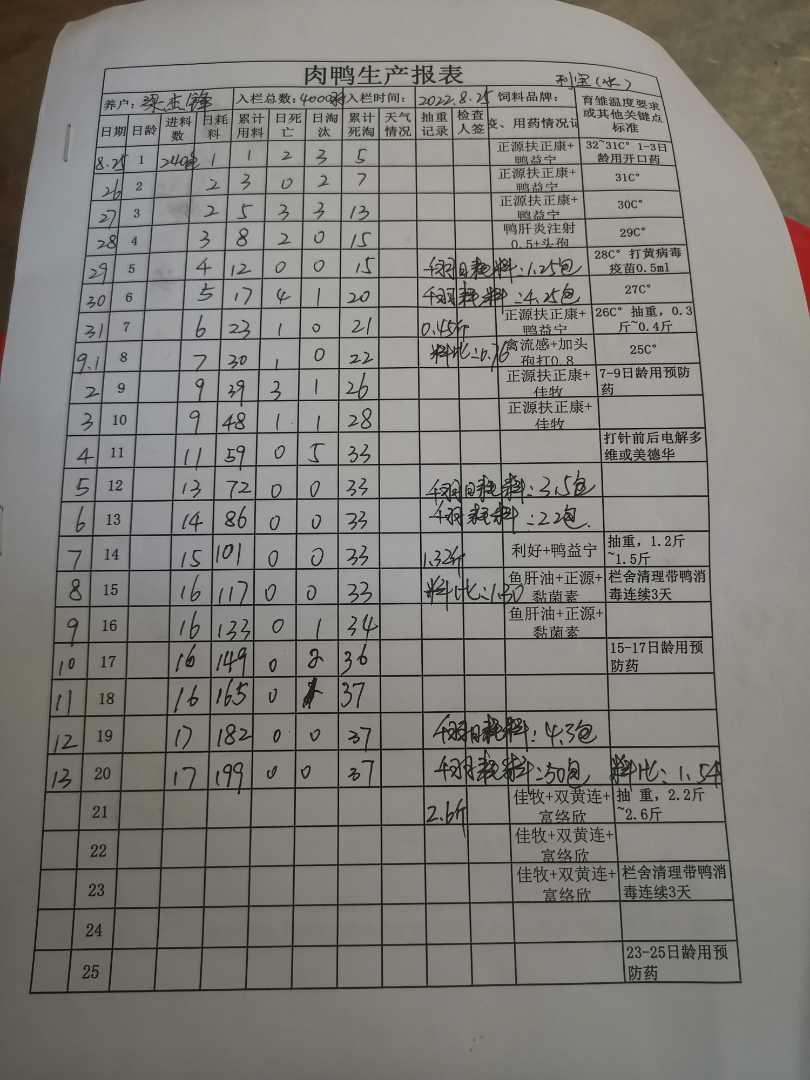 肉鸭生产报表
利宝(水)
养户: 梁杰锋 入栏总数: 4000 入栏时间: 2022.8.25 饲料品牌: 育雏温度要求或其他关键点标准
日期 日龄 进料数 日耗料 累计用料 日死亡 日淘汰 累计死淘 天气情况 抽重记录 检查人签 变、用药情况记
8.25 1 240包 1 1 2 3 5 正源扶正康+鸭益宁 32~31C° 1-3日龄用开口药
26 2 2 3 0 2 7 正源扶正康+鸭益宁 31C°
27 3 2 5 3 3 13 正源扶正康+鸭益宁 30C°
28 4 3 8 2 0 15 鸭肝炎注射0.5+头孢 29C°
29 5 4 12 0 0 15 千羽日耗料:1.25包 28C° 打黄病毒疫苗0.5ml
30 6 5 17 4 1 20 千羽耗料:4.25包 27C°
31 7 6 23 1 0 21 0.45斤 正源扶正康+鸭益宁 26C° 抽重, 0.3斤~0.4斤
9.1 8 7 30 1 0 22 料比:0.76 禽流感+加头孢打0.8 25C°
2 9 9 39 3 1 26 正源扶正康+佳牧 7-9日龄用预防药
3 10 9 48 1 1 28 正源扶正康+佳牧
4 11 11 59 0 5 33 打针前后电解多维或美德华
5 12 13 72 0 0 33 千羽日耗料:3.5包
6 13 14 86 0 0 33 千羽耗料:22包.
7 14 15 101 0 0 33 1.32斤 利好+鸭益宁 抽重, 1.2斤~1.5斤
8 15 16 117 0 0 33 料比:1.30 鱼肝油+正源+黏菌素 栏舍清理带鸭消毒连续3天
9 16 16 133 0 1 34 鱼肝油+正源+黏菌素
10 17 16 149 0 2 36 15-17日龄用预防药
11 18 16 165 0 1 37
12 19 17 182 0 0 37 千羽日耗料:4.3包
13 20 17 199 0 0 37 千羽耗料:50包 料比:1.54
21 2.6斤 佳牧+双黄连+富络欣 抽 重, 2.2斤~2.6斤
22 佳牧+双黄连+富络欣
23 佳牧+双黄连+富络欣 栏舍清理带鸭消毒连续3天
24
25 23-25日龄用预防药